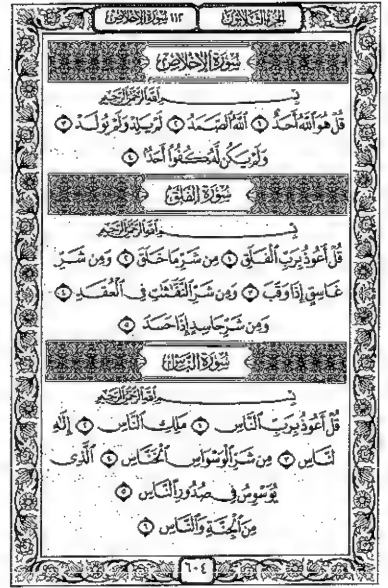 الجزء الثلاثون
١١٢ سورة الإخلاص
سُورَةُ الإِخْلَاصِ
بِسْمِ اللَّهِ الرَّحْمَٰنِ الرَّحِيمِ
قُلْ هُوَ ٱللَّهُ أَحَدٌ ١ ٱللَّهُ ٱلصَّمَدُ ٢ لَمْ يَلِدْ وَلَمْ يُولَدْ ٣
وَلَمْ يَكُن لَّهُۥ كُفُوًا أَحَدٌ ٤
سُورَةُ الْفَلَقِ
بِسْمِ اللَّهِ الرَّحْمَٰنِ الرَّحِيمِ
قُلْ أَعُوذُ بِرَبِّ ٱلْفَلَقِ ١ مِن شَرِّ مَا خَلَقَ ٢ وَمِن شَرِّ
غَاسِقٍ إِذَا وَقَبَ ٣ وَمِن شَرِّ ٱلنَّفَّٰثَٰتِ فِى ٱلْعُقَدِ ٤
وَمِن شَرِّ حَاسِدٍ إِذَا حَسَدَ ٥
سُورَةُ النَّاسِ
بِسْمِ اللَّهِ الرَّحْمَٰنِ الرَّحِيمِ
قُلْ أَعُوذُ بِرَبِّ ٱلنَّاسِ ١ مَلِكِ ٱلنَّاسِ ٢ إِلَٰهِ
ٱلنَّاسِ ٣ مِن شَرِّ ٱلْوَسْوَاسِ ٱلْخَنَّاسِ ٤ ٱلَّذِى
يُوَسْوِسُ فِى صُدُورِ ٱلنَّاسِ ٥
مِنَ ٱلْجِنَّةِ وَٱلنَّاسِ ٦
٦٠٤